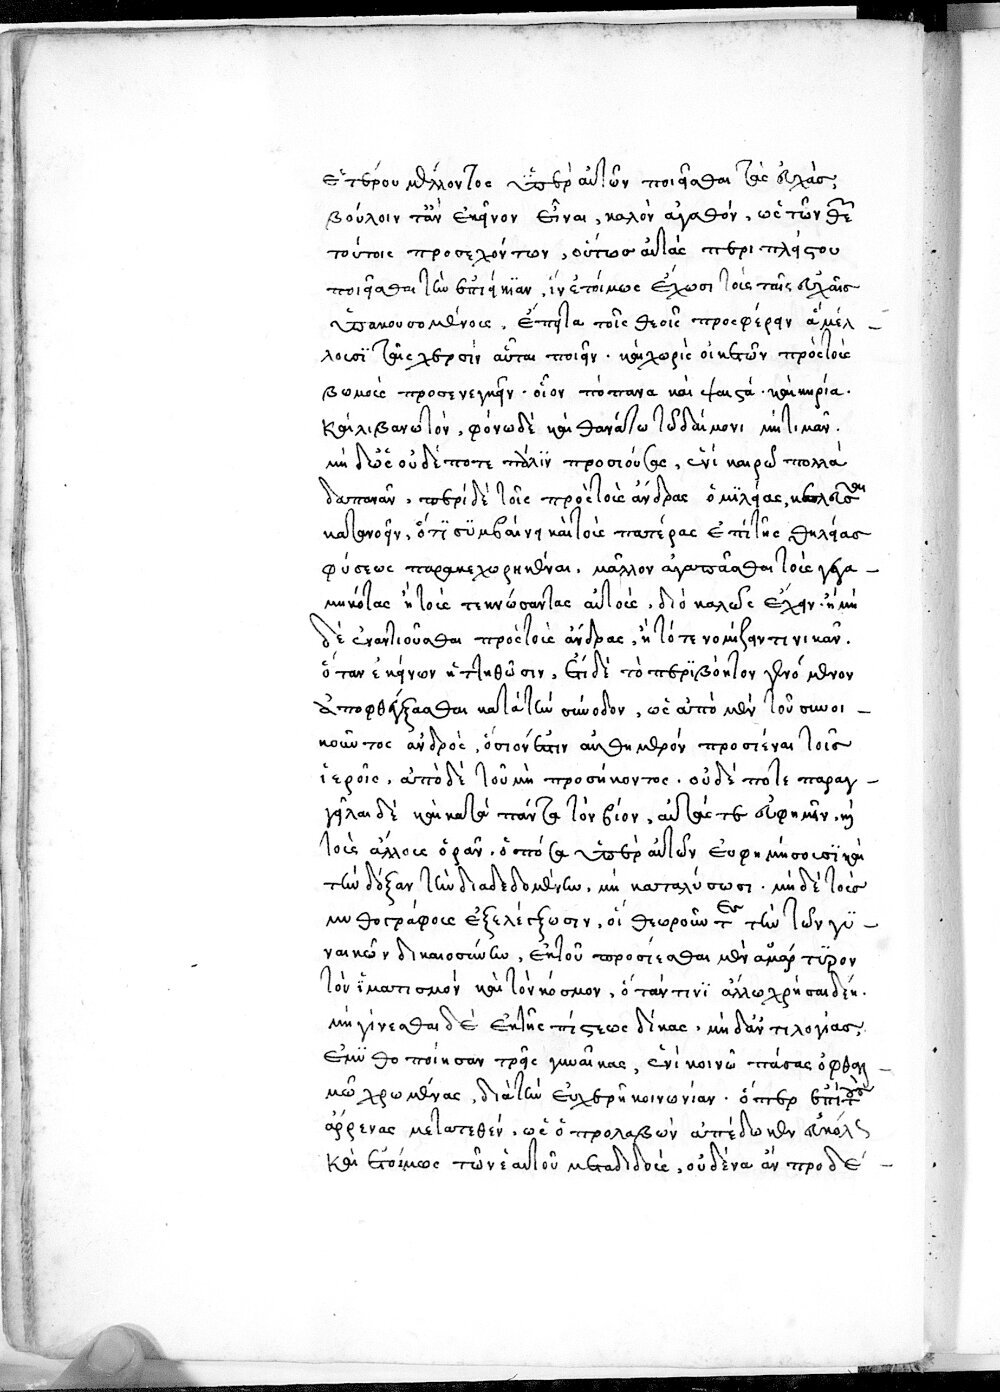 ἑτέρου μέλλοντος ὑπὲρ αὐτῶν ποιεῖσθαι τὰς εὐχάς,
βούλοιντ' ἂν ἐκεῖνον εἶναι, καλὸν ἀγαθόν, ὡς τῶν θεῶν
τούτοις προσεχόντων, οὕτως αὐτὰς περιπλείστου
ποιεῖσθαι τὴν ἐπιείκιαν, ἵν' ἑτοίμως ἔχωσι τοῖς ταῖς εὐχαῖς
ὑπακουσομένοις. ἔπειτα τοῖς θεοῖς προσφέρειν ἃ μέλ-
λουσϊ ταῖς χερσὶν αὗται ποιεῖν. καὶ χωρὶς οἰκετῶν πρὸς τοὺς
βωμοὺς προσενεγκεῖν. οἷον πόπανα καὶ ψαιστά. καὶ κηρία.
καὶ λιβανωτόν, φόνω δὲ καὶ θανάτω τὸ δαίμονι μὴ τιμᾶν.
μὴ δ' ὡς οὐδέποτε πάλϊν προσιούσας, ἑνὶ καιρῶ πολλὰ
δαπανᾶν, περὶ δὲ τῆς πρὸς τοὺς ἄνδρας ὁμϊλείας, κελεῦσαι
κατανοεῖν, ὅτϊ συμβαίνει καὶ τοὺς πατέρας ἐπὶ τῆς θηλείας
φύσεως παρακεχωρηκέναι, μᾶλλον ἀγαπᾶσθαι τοὺς γεγα-
μηκότας ἢ τοὺς τεκνώσαντας αὐτοὺς, διὸ καλῶς ἔχειν. ἢ μὴ
δὲ ἐναντιοῦσθαι πρὸς τοὺς ἄνδρας, ἢ τότε νομίζειν τινικᾶν.
ὅταν ἐκείνων ἡττηθῶσιν, ἔτι δὲ τὸ περϊβόητον γενόμενον
ἀποφθέγξασθαι κατὰ τὴν σύνοδον, ὡς ἀπὸ μὲν τοῦ συνοι-
κοῦντος ἀνδρὸς, ὅσιόν ἐστιν αὐθημερόν προσιέναι τοῖς
ἱεροῖς, ἀπὸ δὲ τοῦ μὴ προσήκοντος. οὐδέ ποτε παραγ-
γεῖλαι δὲ καὶ κατὰ πάντα τὸν βίον, αὐτάς τε εὐφημεῖν, καὶ
τοὺς ἄλλους ὁρᾶν. ὁπόσα ὑπὲρ αὐτῶν εὐφημήσουσϊ καὶ
τὴν δόξαν τὴν διαδεδομένην, μὴ καταλύσωσι. μὴ δὲ τοὺς
μυθογράφους ἐξελέγξωσιν, οἱ θεωροῦντες τὴν τῶν γυ-
ναικῶν δικαιοσύνην, ἐκ τοῦ προσίεσθαι μὲν ἀμάρτϋρον
τὸν ἱματισμὸν καὶ τὸν κόσμον, ὅταν τινϊ ἄλλω χρῆσαι δέη.
μὴ γίνεσθαι δὲ ἐκ τῆς πίστεως δίκας. μὴ δ' ἀντιλογίας,
ἐμϋθοποίησαν τρεῖς γυναῖκας, ἑνὶ κοινῶ πάσας ὀφθαλ-
μῶ χρωμένας, διὰ τὴν εὐχερῆ κοινωνίαν. ὅπερ ἐπὶ τοὺς
ἄρρενας μετατεθέν. ὡς ὁ προλαβὼν ἀπέδωκεν εὐκόλως
καὶ ἑτοίμως τῶν ἑαυτοῦ μεταδιδοὺς, οὐδένα ἂν προδέ-